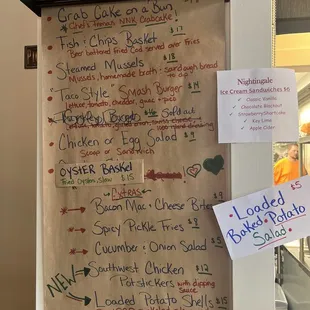 Crab Cake on a Bun
Chef's famous NNK Crabcake!
Fish & Chips Basket $17
Beer battered fried Cod served over fries
Steamed Mussels $18
Mussels, homemade broth - sourdough bread
Taco Style Smash Burger $14
Lettuce, tomato, cheddar, guac + taco
Sold out
Chicken or Egg Salad $9
Scoop or Sandwich
OYSTER BASKET
Fried Oysters, Slaw $15
Extras
Bacon Mac & Cheese Bites $9
Spicy Pickle Fries
Cucumber & Onion Salad $5
NEW
Southwest Chicken $12
Potstickers with dipping sauce
Loaded Potato Shells $15
Nightingale
Ice Cream Sandwiches $6
✓ Classic Vanilla
✓ Chocolate Blackout
✓ Strawberry Shortcake
✓ Key Lime
✓ Apple Cider
Loaded $5
Baked Potato
Salad